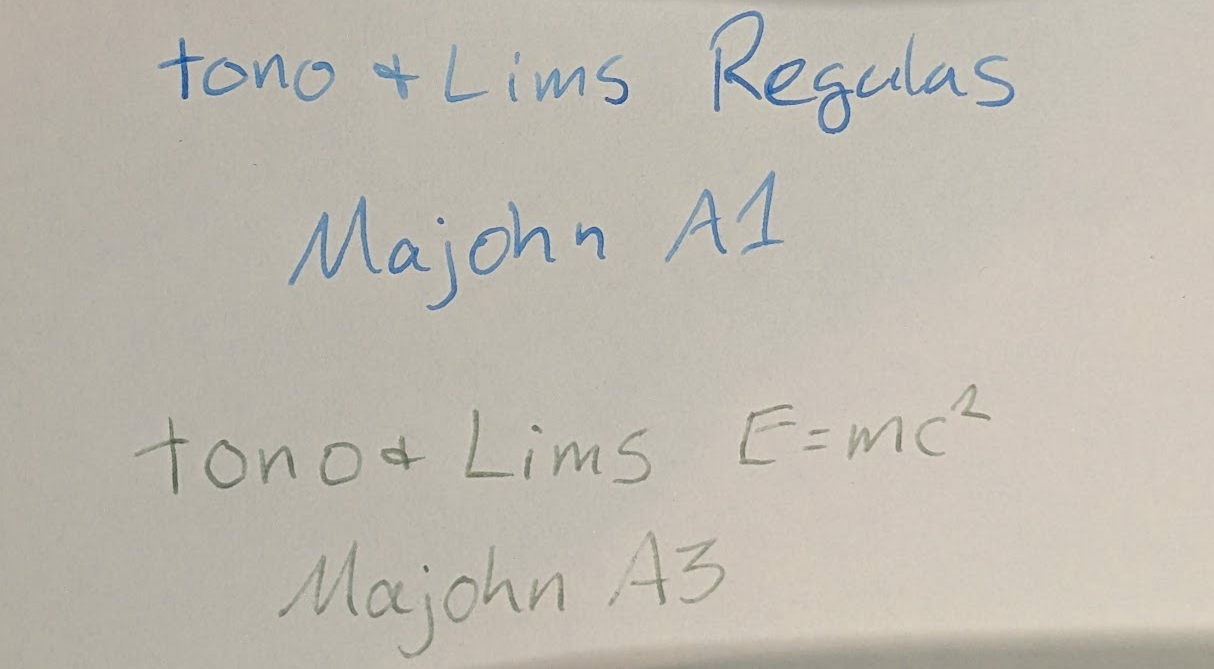 tono & Lims Regulas
Majohn A1
tono & Lims E=mc²
Majohn A3